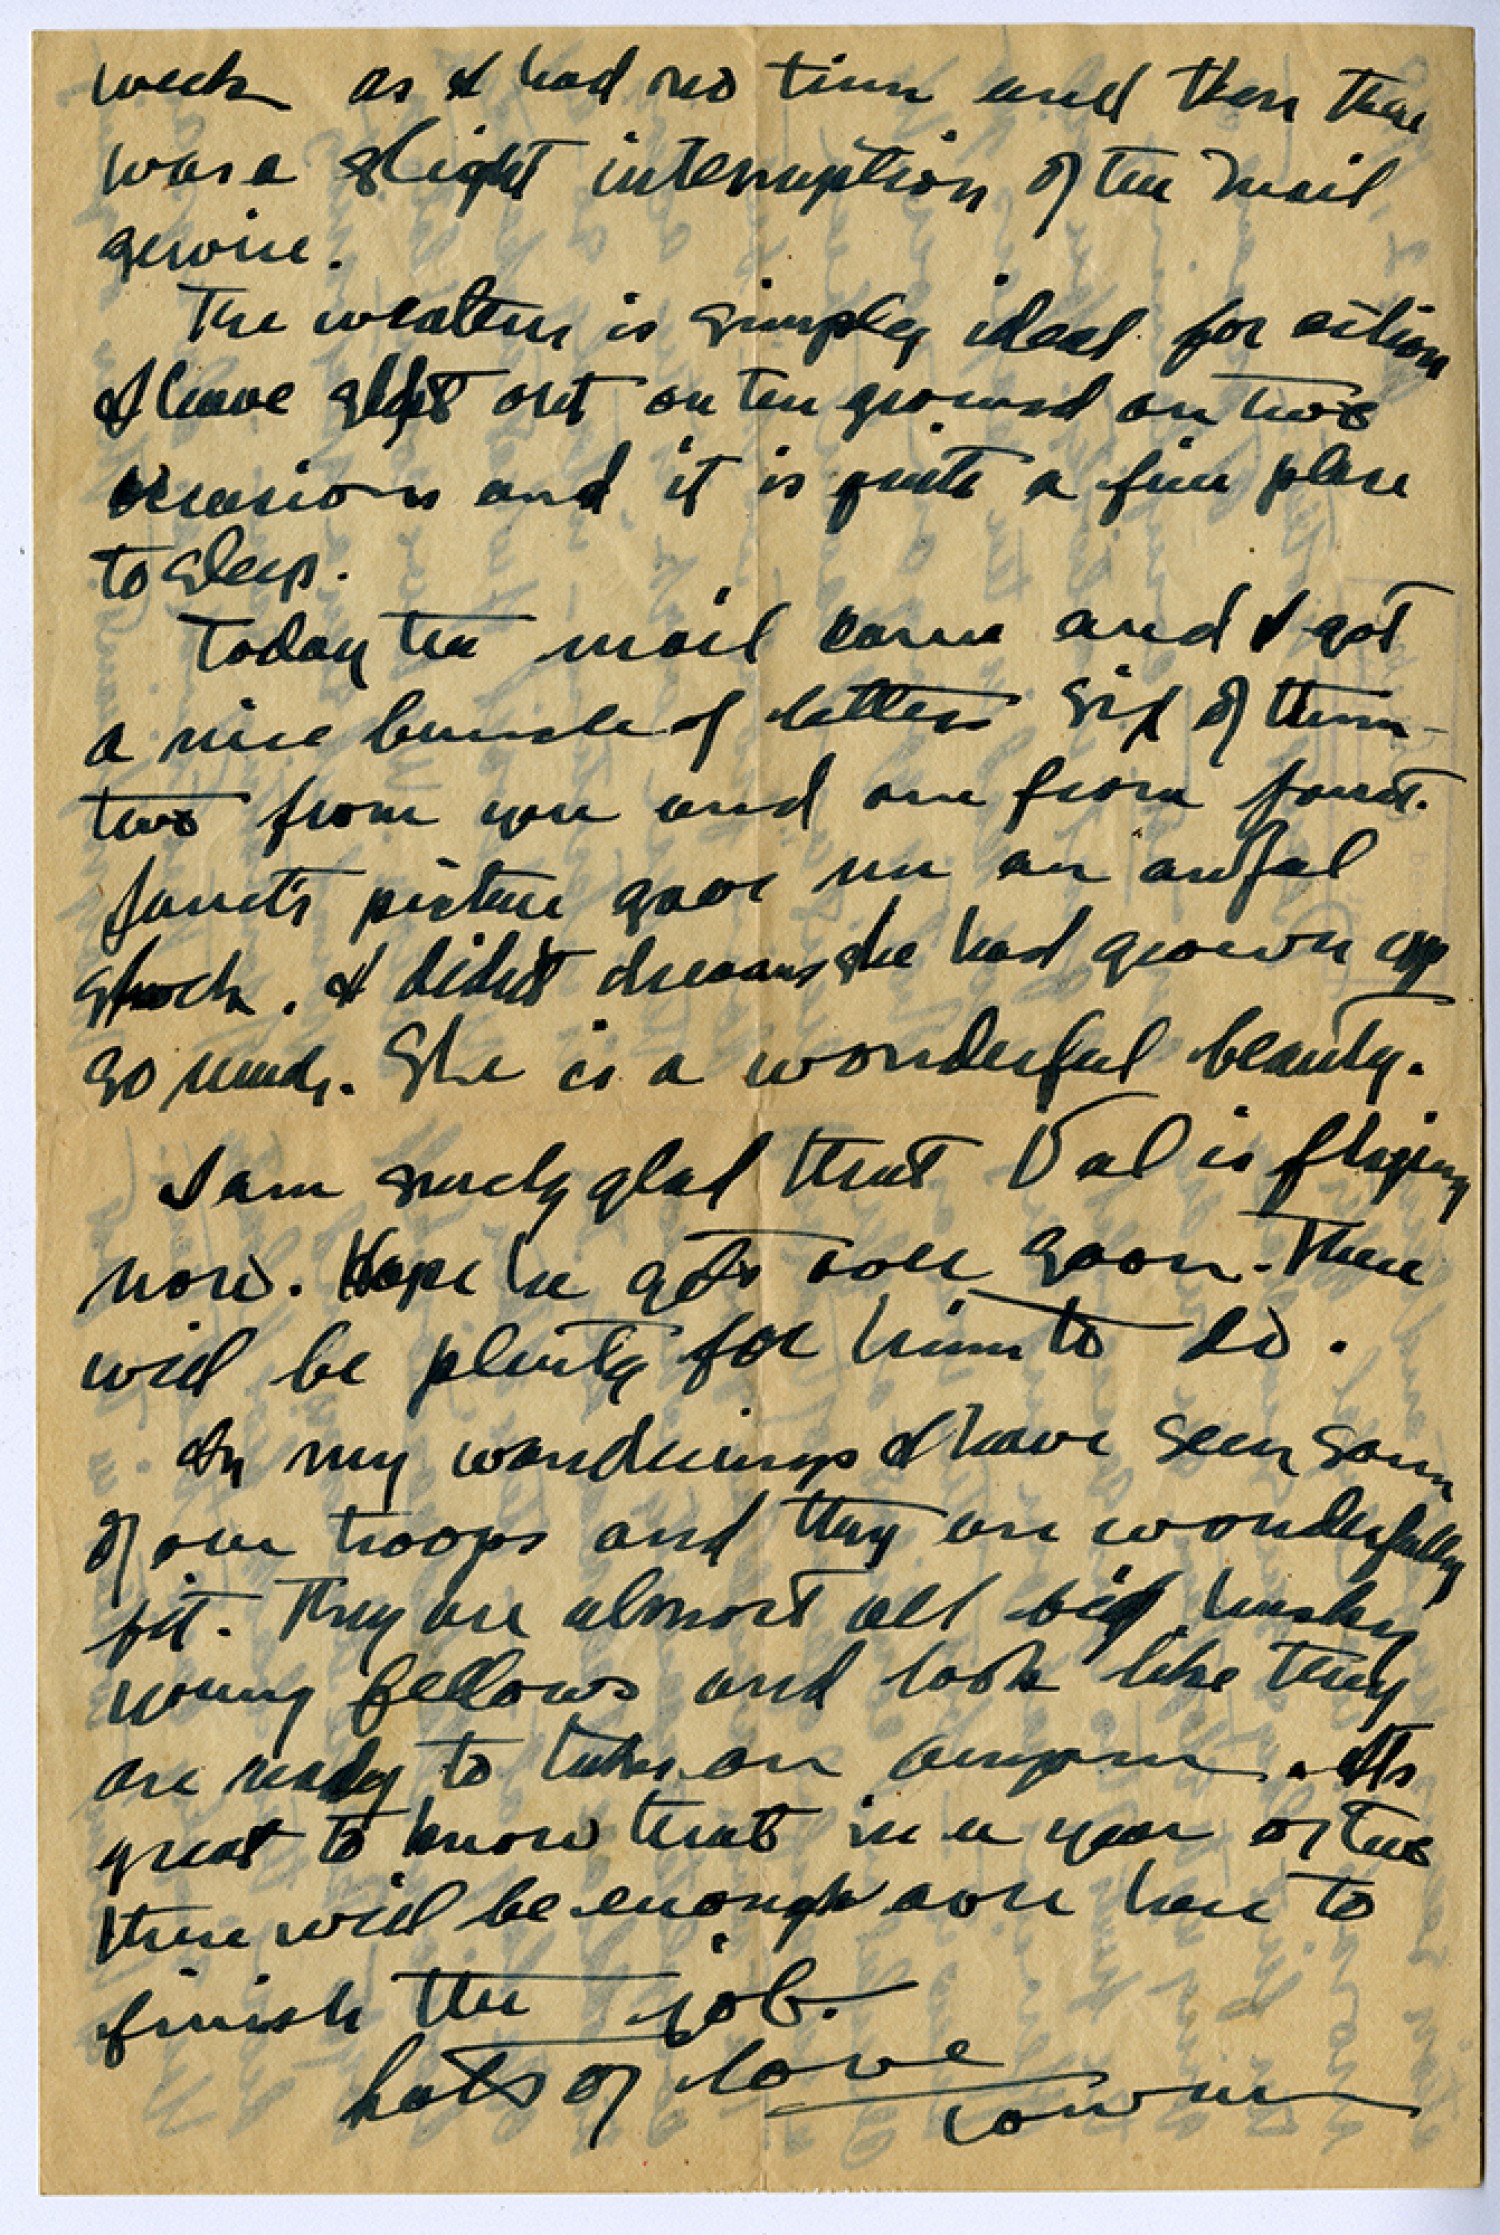 week as I had no time and then there
was a slight interruption of the mail
service.
The weather is simply ideal for action
I have slept out on the ground on two
occasions and it is quite a fine place
to sleep.
Today the mail came and I got
a nice bundle of letters six of them -
two from you and one from Janet.
Janet's picture gave me an awful
shock. I didn't dream she had grown up
so much. She is a wonderful beauty.
I am surely glad that Val is flying
now. Hope he gets over soon. There
will be plenty for him to do.
In my wanderings I have seen some
of our troops and they are wonderfully
fit. They are almost all big husky
young fellows and look like they
are ready to take on anyone. Its
great to know that in a year or two
there will be enough over here to
finish the job.
Lots of love